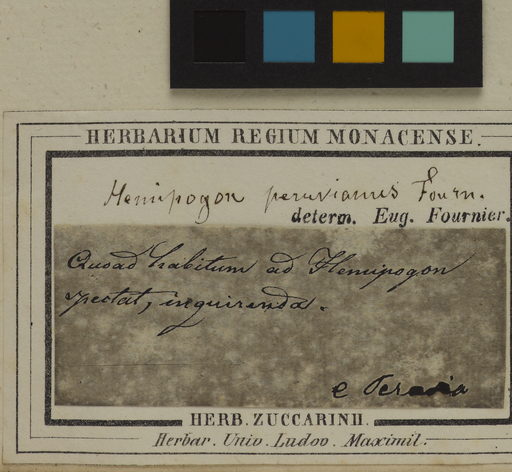 HERBARIUM REGIUM MONACENSE.
Hemipogon peruvianus Fourn.
determ. Eug. Fournier.
Quoad habitum ad Hemipogon
spectat, inquirenda.
e Peruvia
HERB. ZUCCARINII.
Herbar. Univ. Ludov. Maximil: